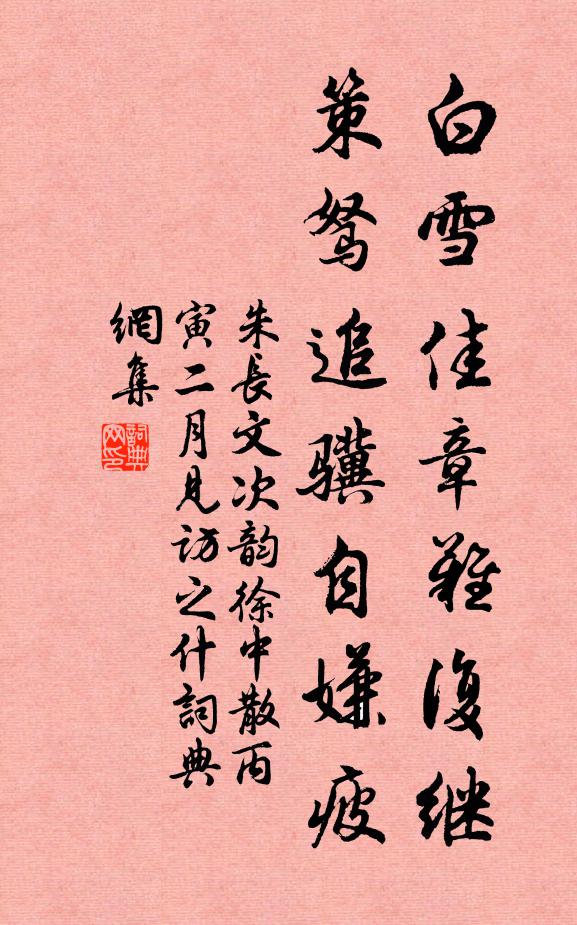 白雪佳章难復继
策驽追骥自嫌疲
朱長文次韵徐中散丙
寅二月見访之什詞典
網集
詞典
网印